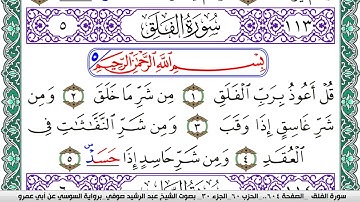 ١١٣ سُورَةُ الفَلَقِ ٥
بِسْمِ اللَّهِ الرَّحْمَٰنِ الرَّحِيمِ
قُلْ أَعُوذُ بِرَبِّ الْفَلَقِ ١ مِن شَرِّ مَا خَلَقَ ٢ وَمِن
شَرِّ غَاسِقٍ إِذَا وَقَبَ ٣ وَمِن شَرِّ النَّفَّٰثَٰتِ فِي
الْعُقَدِ ٤ وَمِن شَرِّ حَاسِدٍ إِذَا حَسَدَ ٥
سورة الفلق الصفحة ٦٠٤ .. الحزب ٦٠ الجزء ٣٠ بصوت الشيخ عبد الرشيد صوفي برواية السوسي عن أبي عمرو